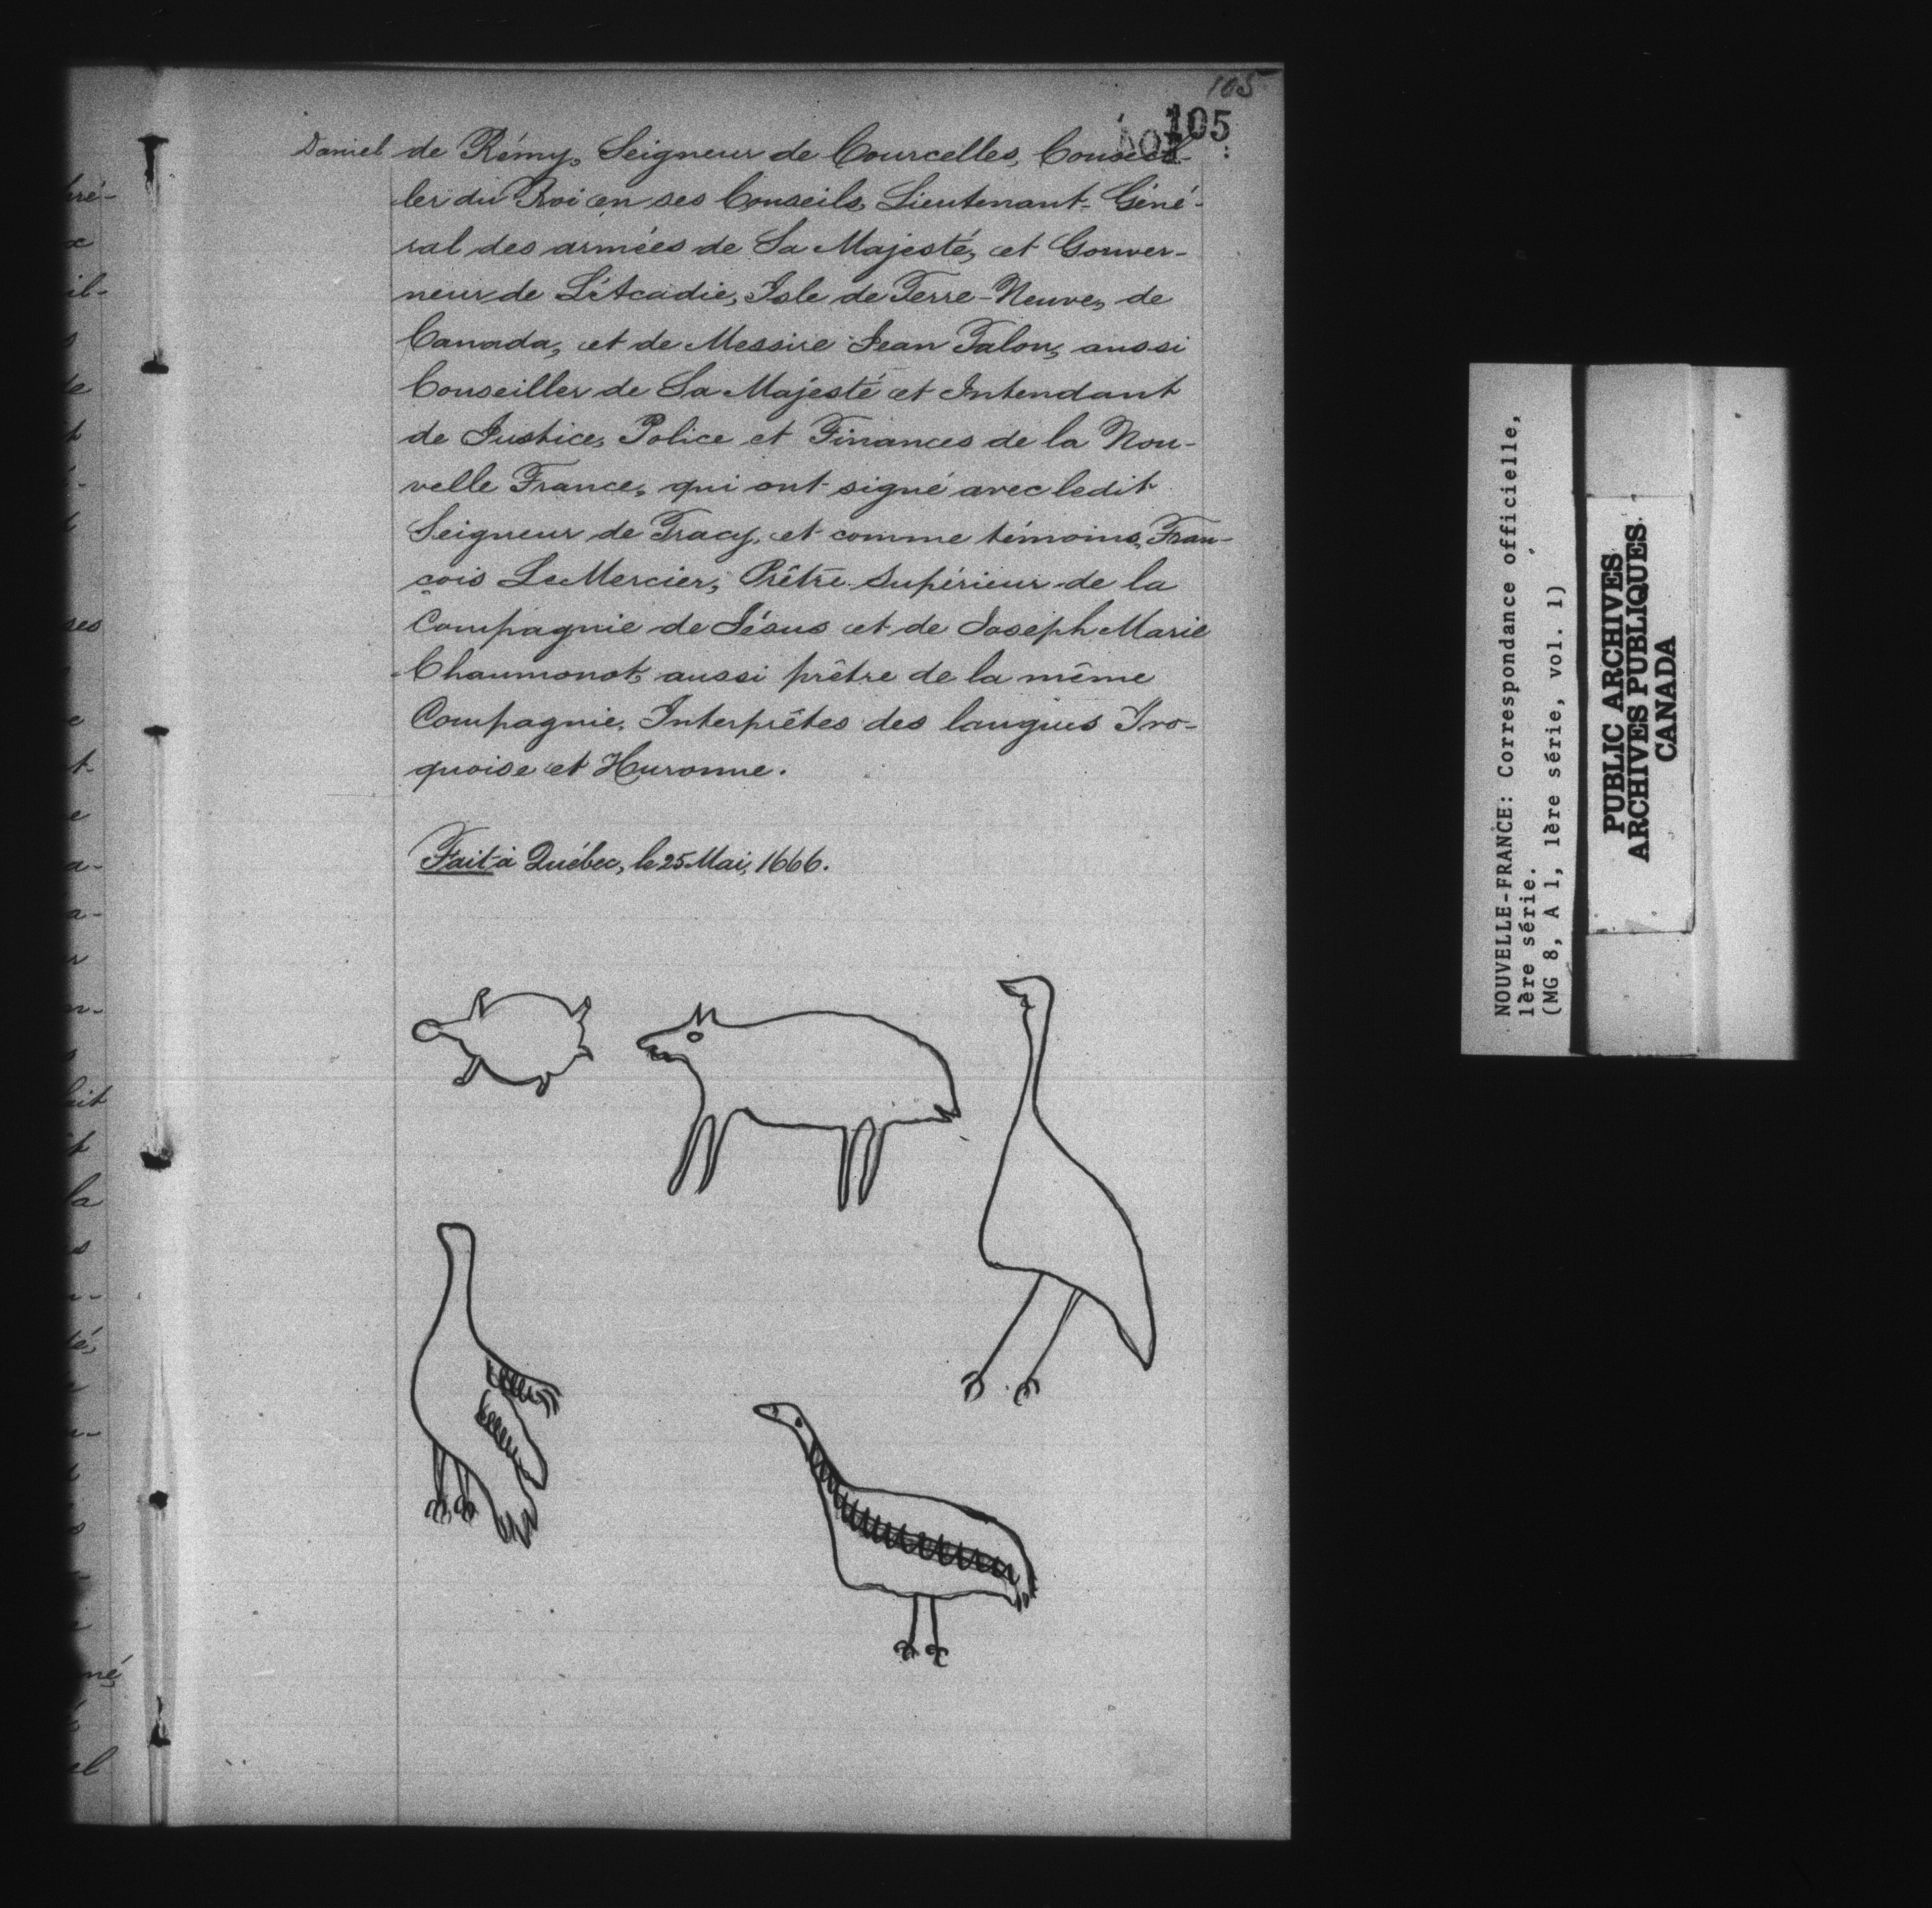 105
105
Daniel de Rémy, Seigneur de Courcelles, Conseil-
ler du Roi en ses Conseils, Lieutenant-Géné-
ral des armées de Sa Majesté, et Gouver-
neur de L'Acadie, Isle de Terre-Neuve, de
Canada, et de Messire Jean Talon, aussi
Conseiller de Sa Majesté et Intendant
de Justice, Police et Finances de la Nou-
velle France, qui ont signé avec ledit
Seigneur de Tracy, et comme témoins, Fran-
çois LeMercier, Prêtre Supérieur de la
Compagnie de Jésus et de Joseph Marie
Chaumonot, aussi prêtre de la même
Compagnie, Interprêtes des langues Iro-
quoise et Huronne.
Fait à Québec, le 25 Mai, 1666.
NOUVELLE-FRANCE: Correspondance officielle,
1ère série.
(MG 8, A 1, 1ère série, vol. 1)
PUBLIC ARCHIVES
ARCHIVES PUBLIQUES
CANADA